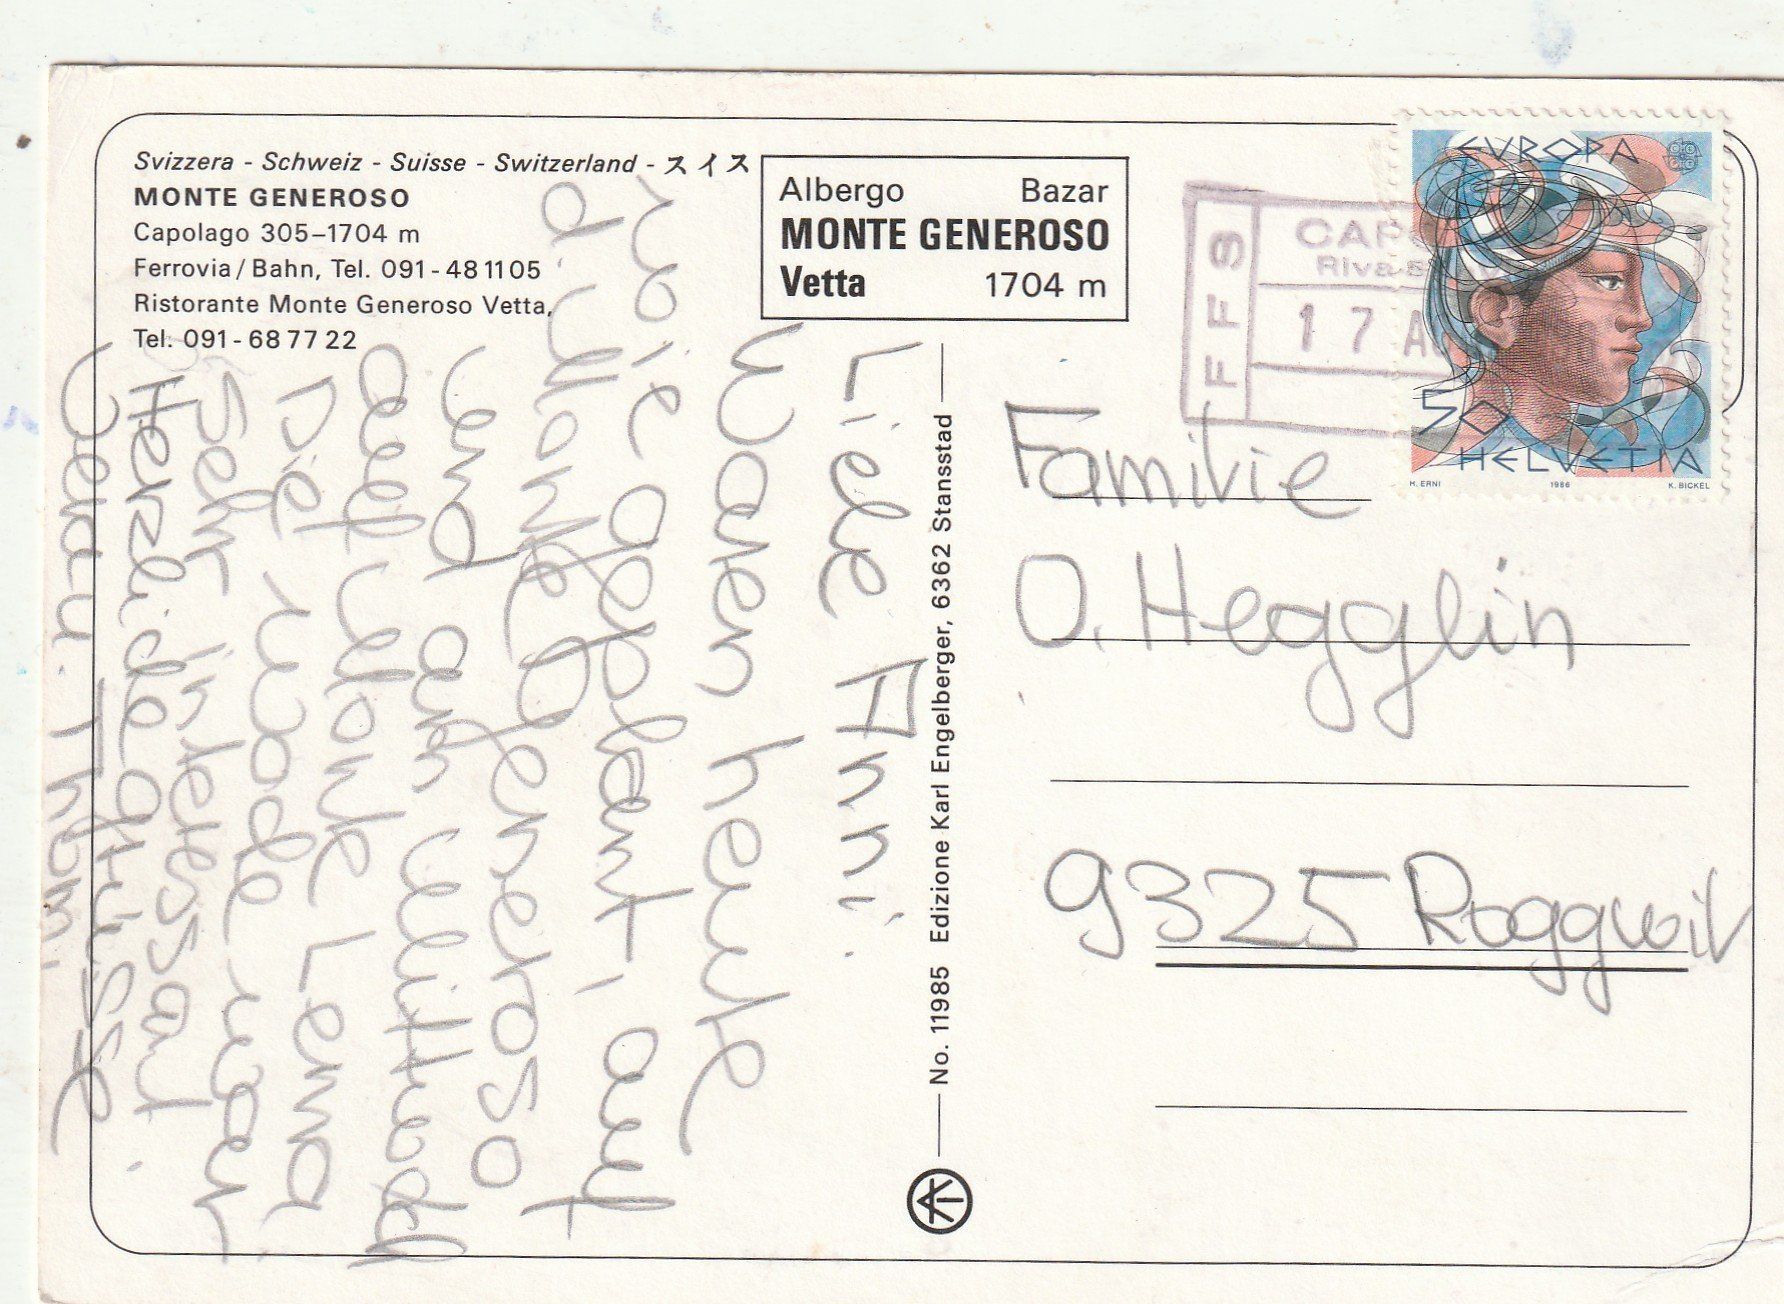 Svizzera - Schweiz - Suisse - Switzerland - スイス
MONTE GENEROSO
Capolago 305–1704 m
Ferrovia / Bahn, Tel. 091 - 48 11 05
Ristorante Monte Generoso Vetta,
Tel. 091 - 68 77 22
Albergo Bazar
MONTE GENEROSO
Vetta 1704 m
Liebe Anni.
Waren heute
wie geplant, auf
d. Monte Generoso
und am Mittwoch
auf Monte Lema
Die Woche war
Sehr interessant
Herzliche Grüsse
u. Thom.
No. 11985 Edizione Karl Engelberger, 6362 Stansstad
FFS
CAP
Riva S
17 A
EVROPA
50
HELVETIA
H. ERNI 1986 K. BICKEL
Familie
O. Hegglin
9325 Roggwil